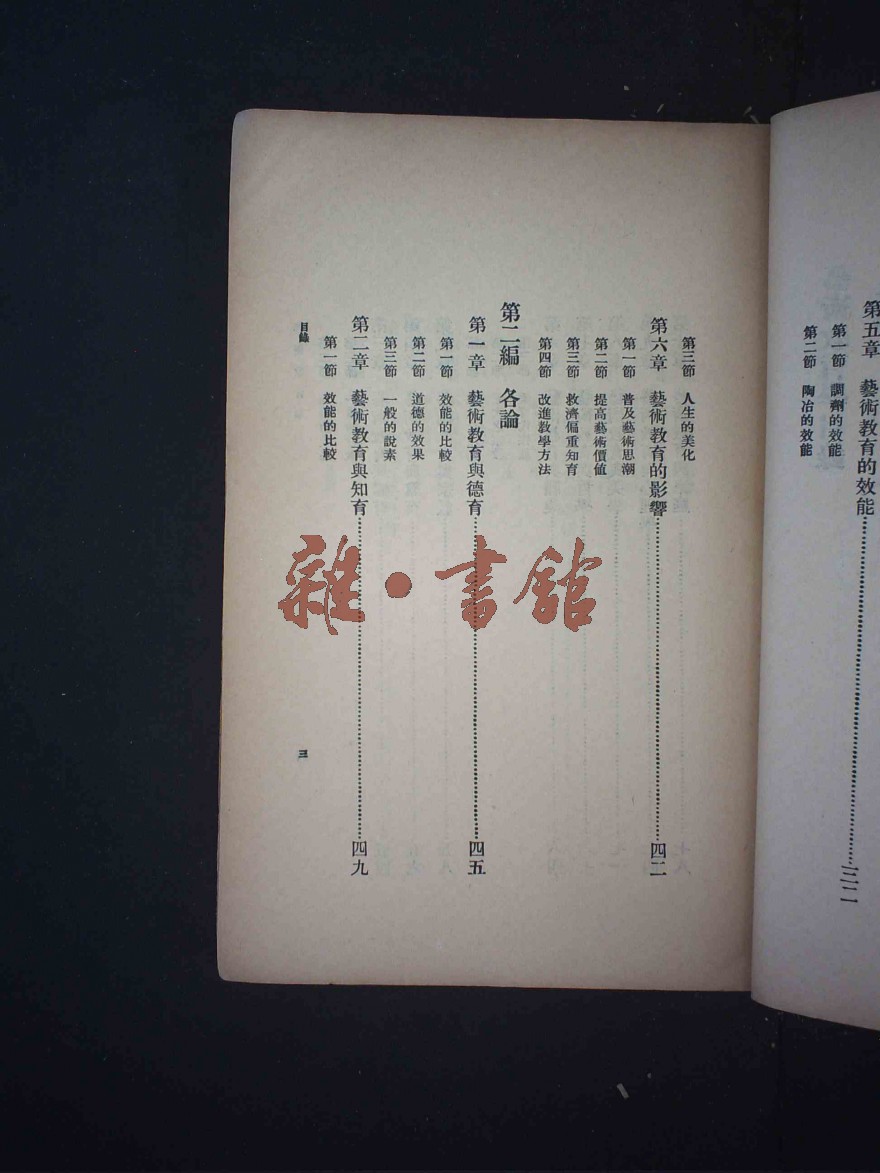 第五章　藝術教育的效能……三二
第一節　調劑的效能
第二節　陶冶的效能
第三節　人生的美化
第六章　藝術教育的影響……四二
第一節　普及藝術思潮
第二節　提高藝術價値
第三節　救濟偏重知育
第四節　改進教學方法
第二編　各論
第一章　藝術教育與德育……四五
第一節　效能的比較
第二節　道德的效果
第三節　一般的說素
第二章　藝術教育與知育……四九
第一節　效能的比較
目錄
三
雜·書館